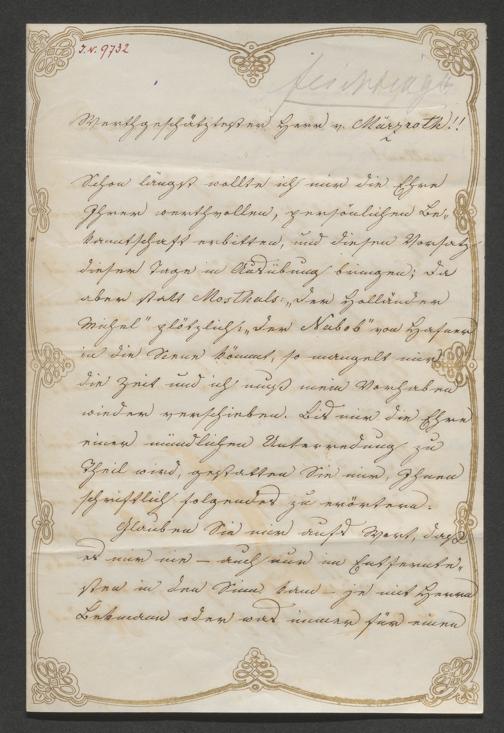 J. N. 9732
Feichtinger
Werthgeschätztester Herr v. Märzroth!!
Schon längst wollte ich mir die Ehre
Ihrer werthvollen, persönlichen Be-
kanntschaft erbitten, und diesen Vorsatz
dieser Tage in Ausübung bringen; da
aber statt Mosthals: „Der Holländer
Michel" plötzlich: „Der Nabob" von Hafner
in die Scene kömmt, so mangelt mir
die Zeit und ich muß mein Vorhaben
wieder verschieben. Bis mir die Ehre
einer mündlichen Unterredung zu
Theil wird, gestatten Sie mir, Ihnen
schriftlich folgendes zu erörtern.
Glauben Sie mir aufs Wort, daß
es mir nie – auch nur im Entfernte-
sten in den Sinn kam – je mit Herrn
oder was immer für einen